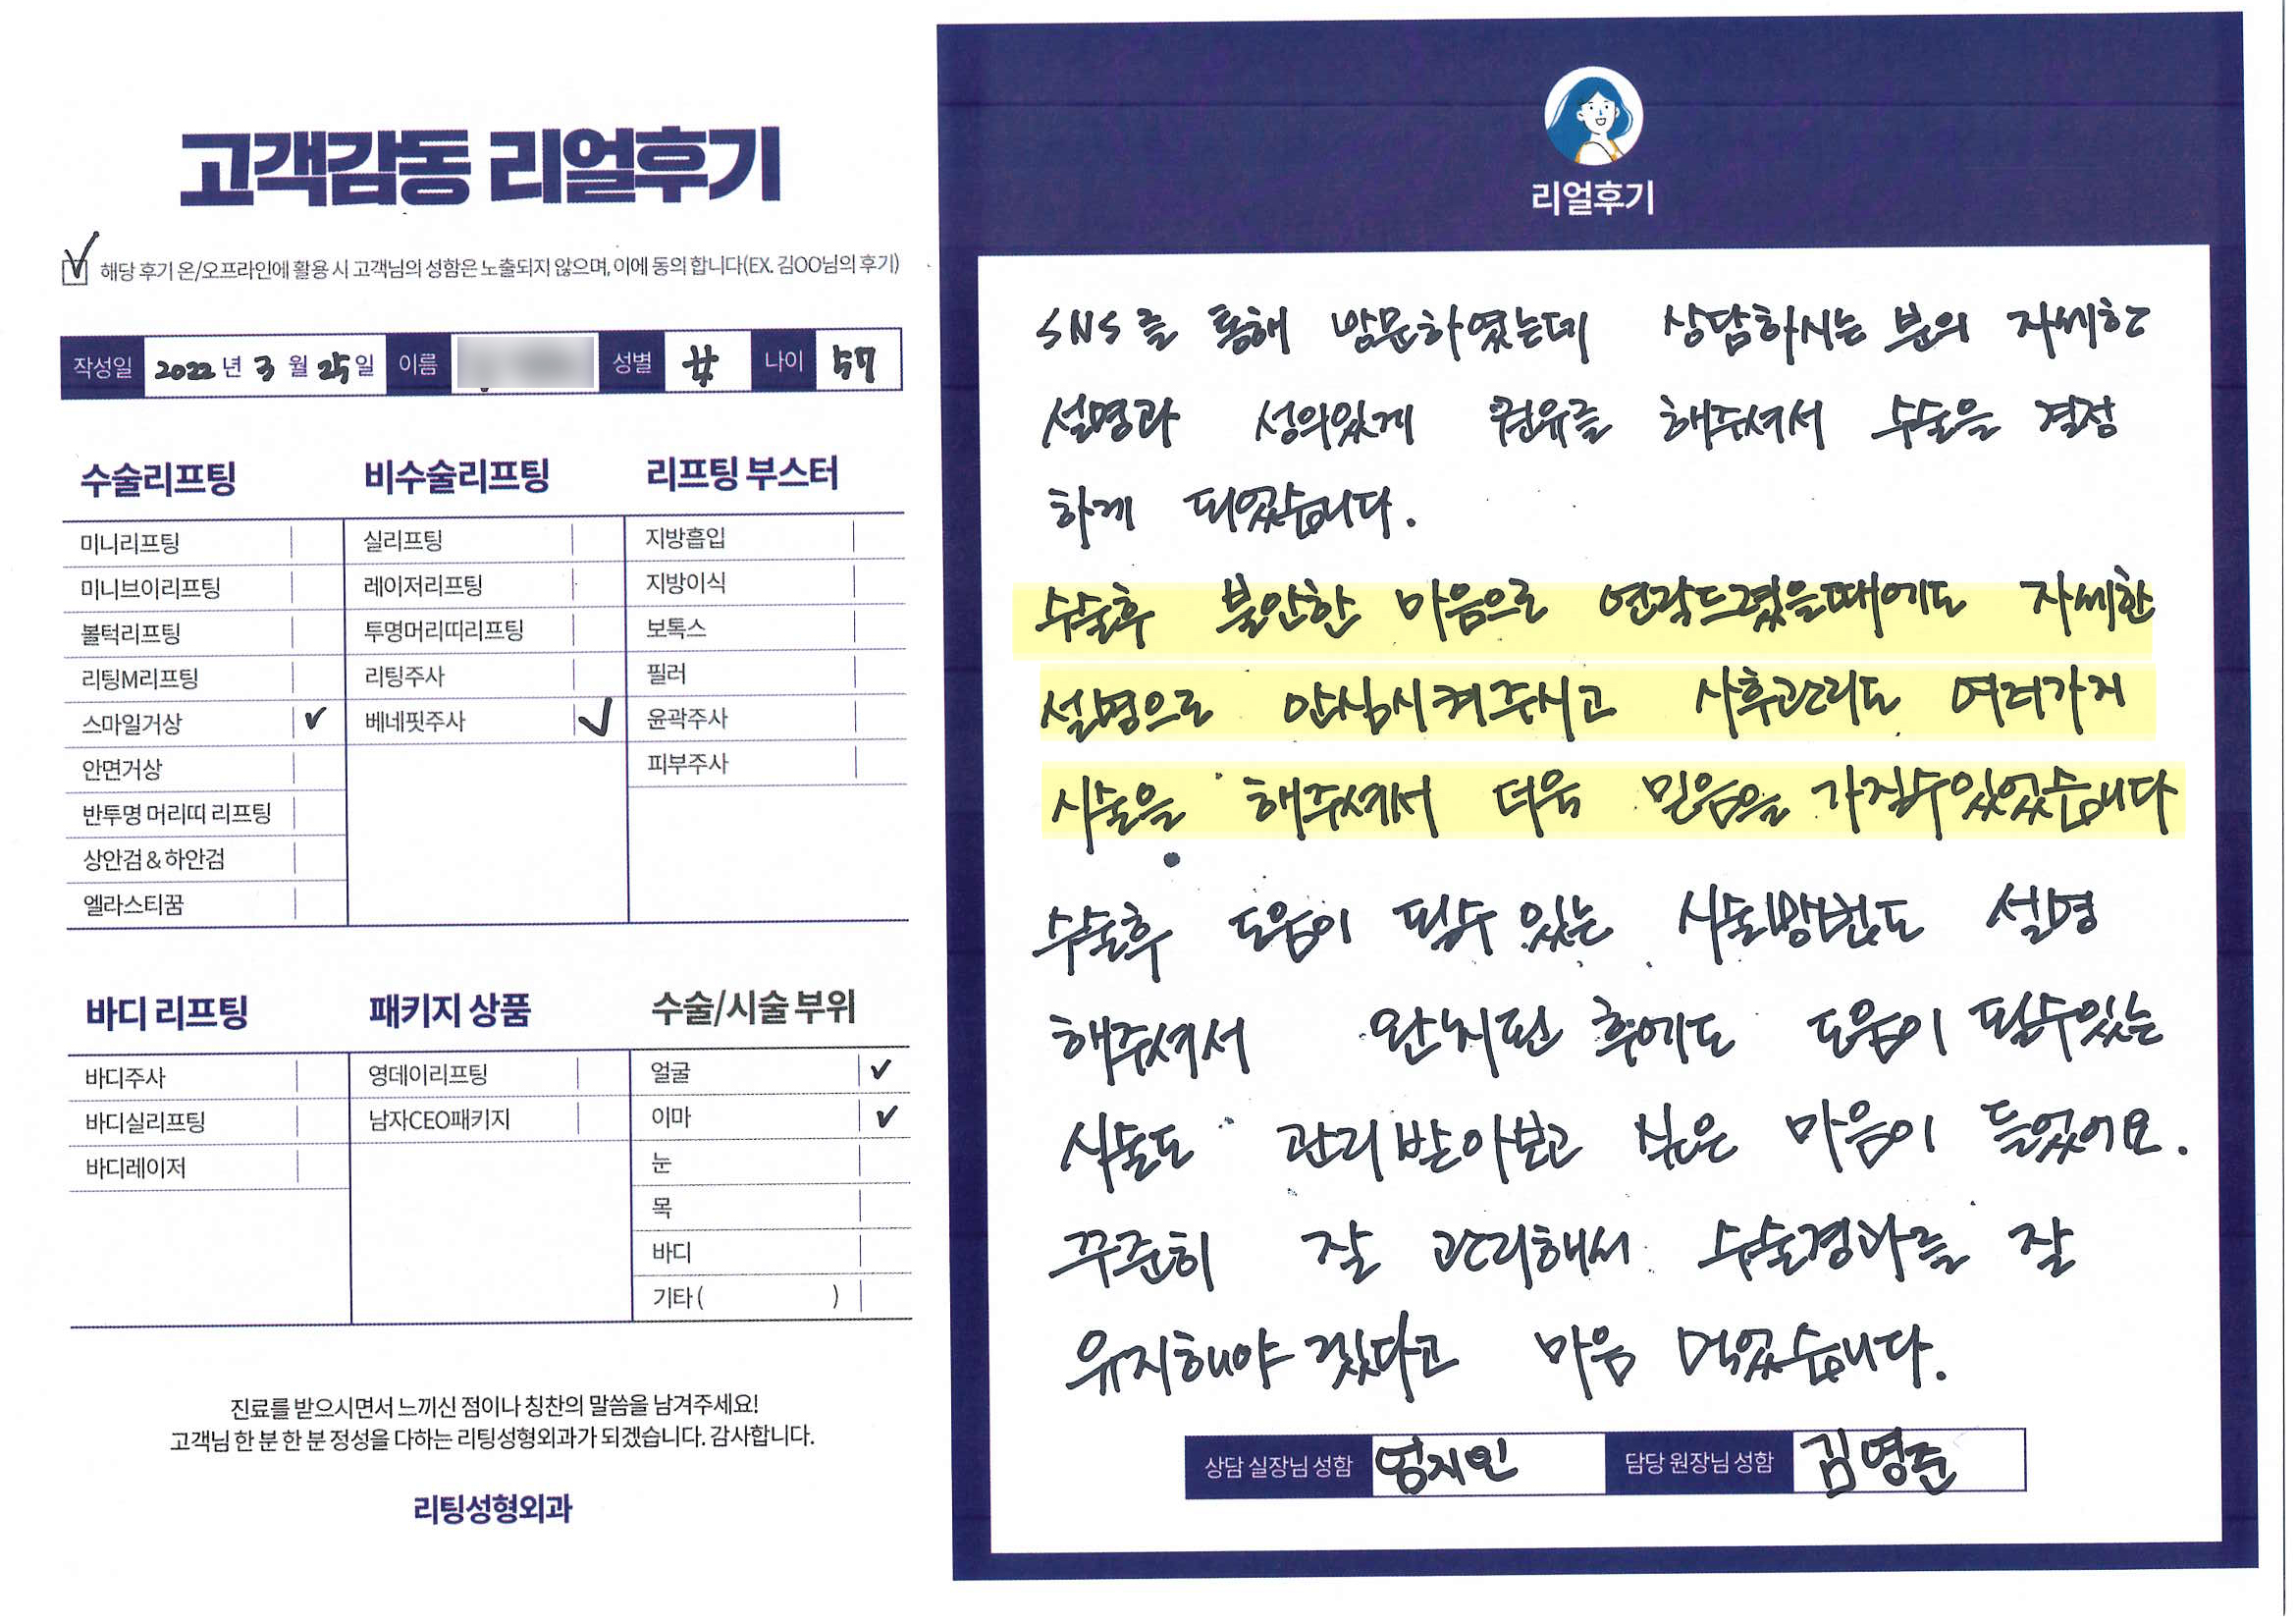 고객감동 리얼후기
해당 후기 온/오프라인에 활용 시 고객님의 성함은 노출되지 않으며, 이에 동의 합니다(EX. 김OO님의 후기)
작성일 2022 년 3 월 25 일 이름 성별 女 나이 57
수술리프팅
미니리프팅
미니브이리프팅
볼턱리프팅
리팅M리프팅
스마일거상 ✓
안면거상
반투명 머리띠 리프팅
상안검 & 하안검
엘라스티꿈
비수술리프팅
실리프팅
레이저리프팅
투명머리띠리프팅
리팅주사
베네핏주사 ✓
리프팅 부스터
지방흡입
지방이식
보톡스
필러
윤곽주사
피부주사
바디 리프팅
바디주사
바디실리프팅
바디레이저
패키지 상품
영데이리프팅
남자CEO패키지
수술/시술 부위
얼굴 ✓
이마 ✓
눈
목
바디
기타 ( )
진료를 받으시면서 느끼신 점이나 칭찬의 말씀을 남겨주세요!
고객님 한 분 한 분 정성을 다하는 리팅성형외과가 되겠습니다. 감사합니다.
리팅성형외과
리얼후기
SNS를 통해 방문하였는데 상담하시는 분의 자세한
설명과 성의있게 권유를 해주셔서 수술을 결정
하게 되었습니다.
수술후 불안한 마음으로 연락드렸을때에도 자세한
설명으로 안심시켜주시고 사후관리도 여러가지
시술을 해주셔서 더욱 믿음을 가질수있었습니다
.
수술후 도움이 될수 있는 시술방법도 설명
해주셔서 완치된 후에도 도움이 될수있는
시술도 관리받아보고 싶은 마음이 들었어요.
꾸준히 잘 관리해서 수술경과를 잘
유지해야 겠다고 마음 먹었습니다.
상담 실장님 성함 엄지인 담당 원장님 성함 김영준